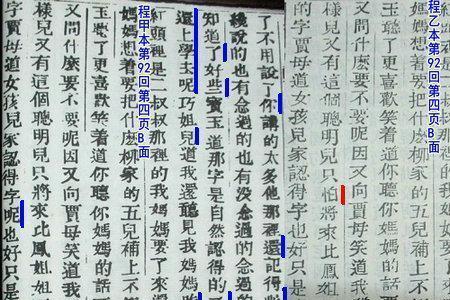 程乙本第92回第四页B面
媽媽想着要把什麽柳家的五兒補上不
玉聽了更喜歡笑着道你聽你媽媽的話
又問什麽要不要呢因又向賈母笑道我
樣兒又有這個聰明兒只怕將來比鳳姐
字賈母道女孩兒家認得字也好只是
了不用說了你講的太多他那裡還記得
纔說的也有念過的也有沒念過的念
知道了好些寶玉道那字是自然認得的
還上學去呢巧姐兒道我還聽見我媽媽
紅頭裡是二叔叔那裡的我媽媽要了來還
程甲本第92回第四页B面
媽媽想着要把什麽柳家的五兒補上不
玉聽了更喜歡笑着道你聽你媽媽的話
又問什麽要不要呢因又向賈母笑道我
樣兒又有這個聰明兒只將來比鳳姐姐
字賈母道女孩兒家認得字呢也好只是